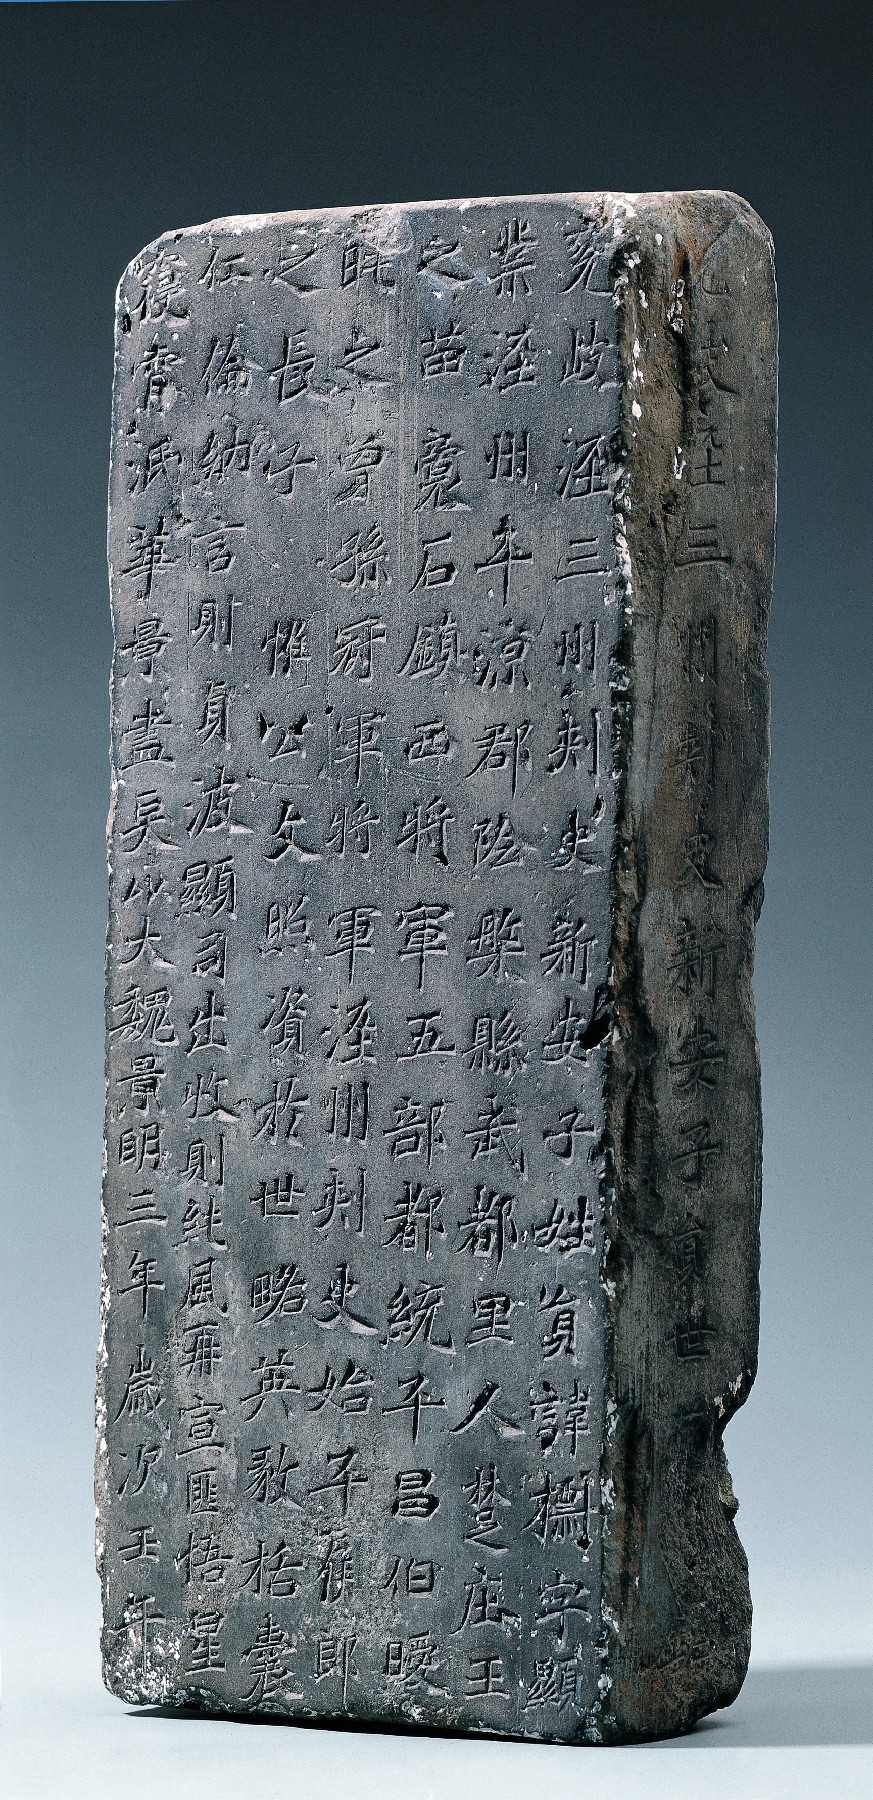 兗岐涇三州刺史新安子貟世
兗岐涇三州刺史新安子姓貟諱標字顯
業涇州平涼郡陰槃縣武都里人楚庄王
之苗裔石鎮西將軍五部都統平昌伯曖
毗之曾孫冠軍將軍涇州刺史始平子郎
之長子 惟公文照資於世略英敹括囊
仁倫納言則貞波顯司出收則純風再宣匪悟星
寢霄泯華景盡吳山大魏景明三年歲次壬午